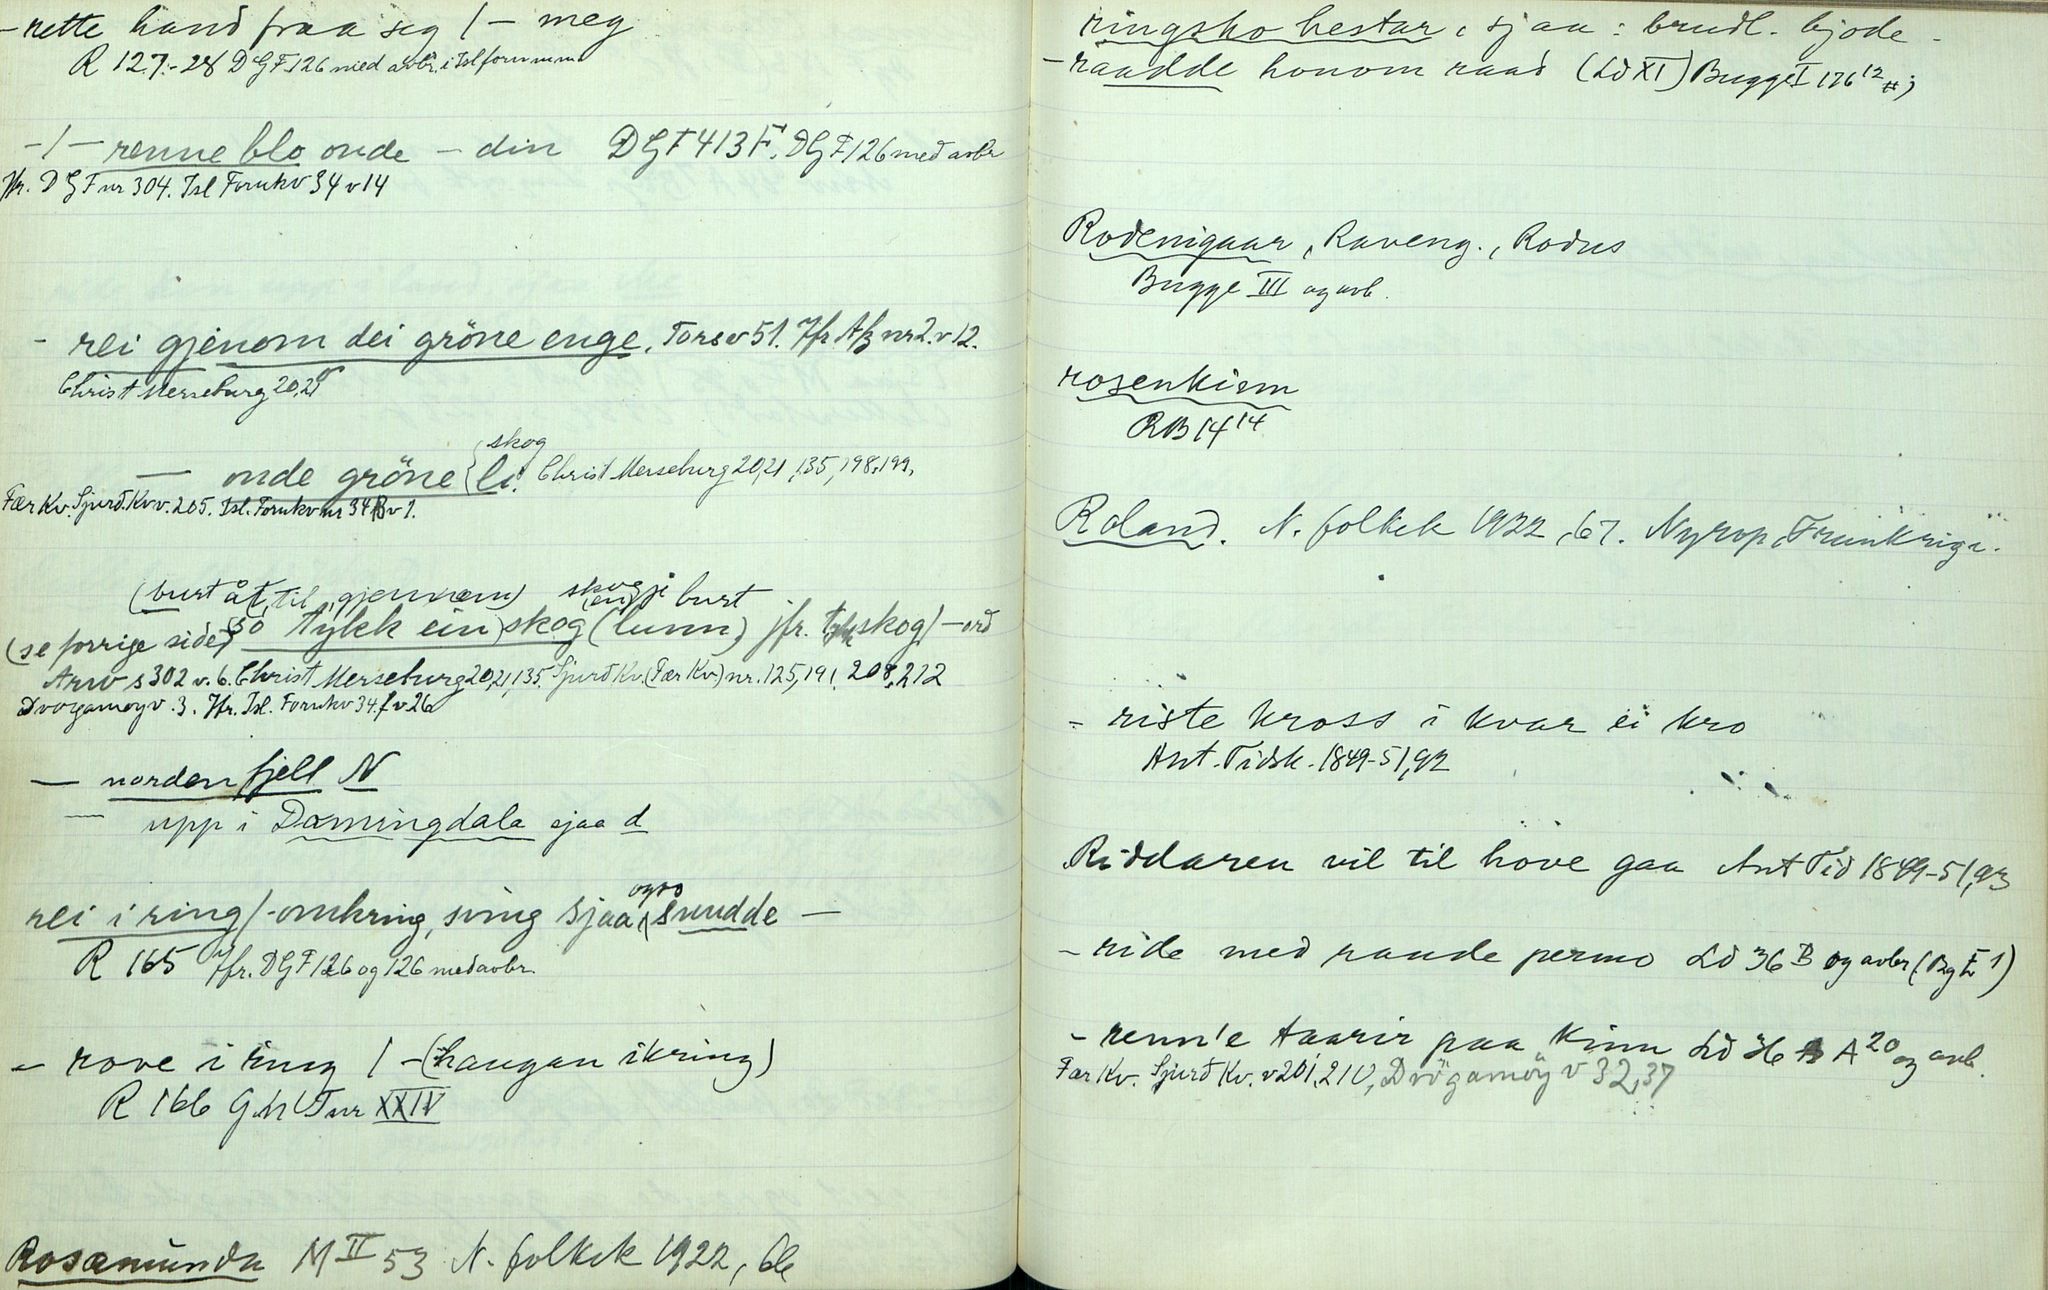 - rette hand fraa seg / - meg
R 127.-28 DGF 126 med avbr. i Isl
-/- renne blo onde - din DGF 413 F. DGF 126 med avbr
Jfr. DGF nr 304. Isl Fornkv 34 v 14
- rei gjenom dei gröne enge. v 51. Jfr nr 2. v 12.
Christ Merseburg 20,21
skog
— onde gröne { li. Christ Merseburg 20,21, 135, 198, 199.
Fær Kv. Sjurd. Kv v. 205. Isl. Fornkv nr 34 B v 1.
(burt åt, til, gjennem) skogji burt
(se forrige side) so tykk ein skog (lunn) jfr. skog/-ord
s 302 v. 6. Christ Merseburg 20,21, 135. Sjurd Kv. (Fær Kv.) nr. 125, 191, 208, 212
v. 3. Jfr. Isl. Fornkv 34. v 26
— norden fjell N
— upp i Domingdala sjaa d
ogso
rei i ring / - omkring, sving sjaa snudde —
R 165 Jfr. DGF 126 og 126 med avbr.
- rove i ring / - (haugan ikring)
R 166 nr XXIV
Rosamunda M II 53 N. folkek 1922, 66
ringsko hestar, sjaa: brudl. bjode -
- raadde honom raad (Ld XI) Bugge I 176 12
Rodenigaar, Raveng., Rodus
Bugge III og avb.
rosenkiem
RB 14 14
Roland. N. folkek 1922, 67. Nyrop,
- riste kross i kvar ei kro
Ant. Tidsk. 1849-51, 92
Riddaren vil til hove gaa Ant Tid 1849-51, 93
- ride med raude permo Ld 36 B og avbr (Bg 1)
- renn'e taarir paa kinn Ld 36 A 20 og avb.
Fær Kv. Sjurd Kv. v 201, 210, Dvögamøy v 32, 37